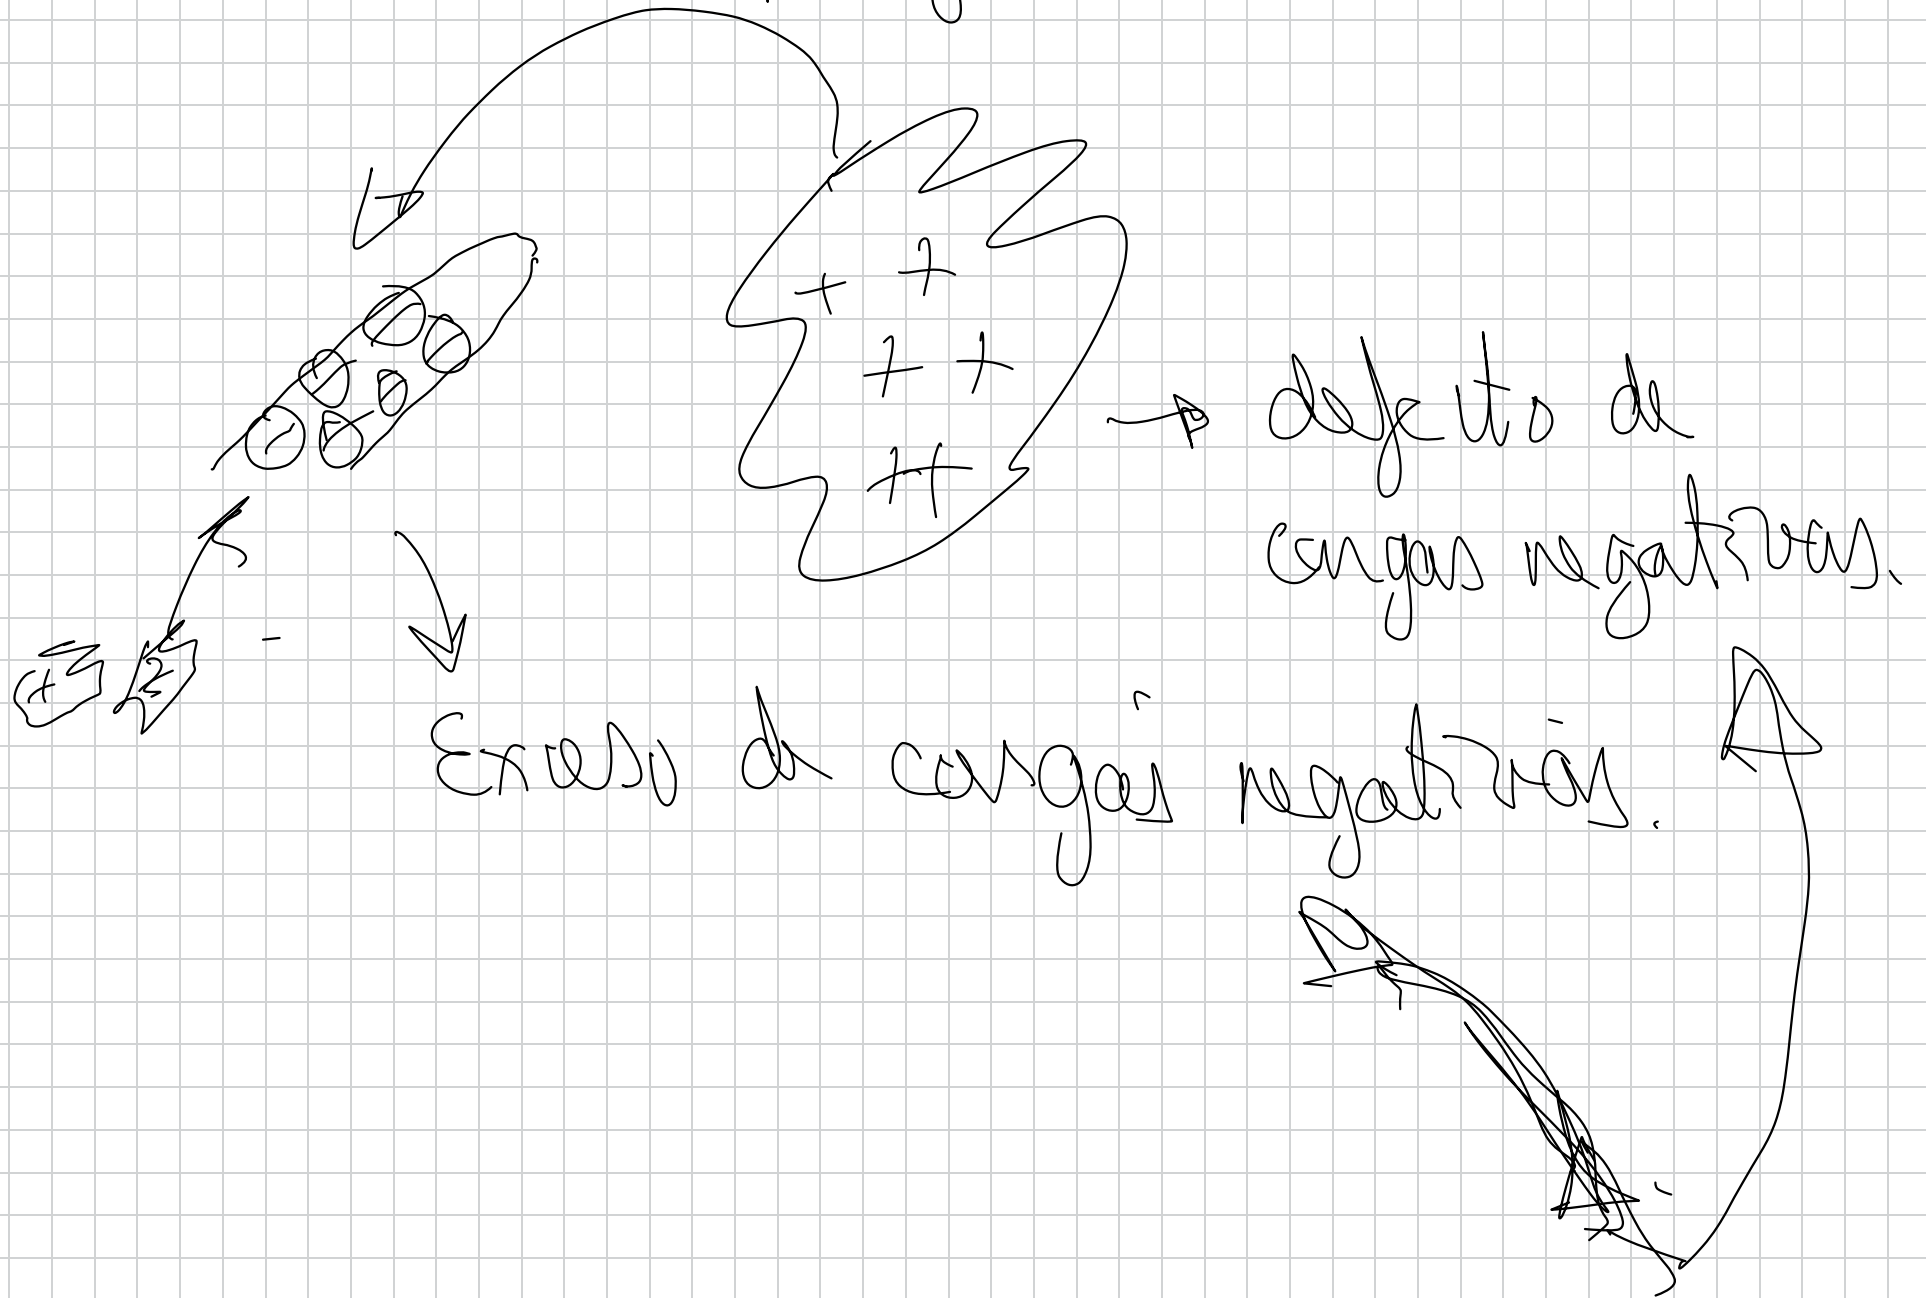 + +
+ +
+ +
defecto de
cargas negativas.
Exceso de cargas negativas.